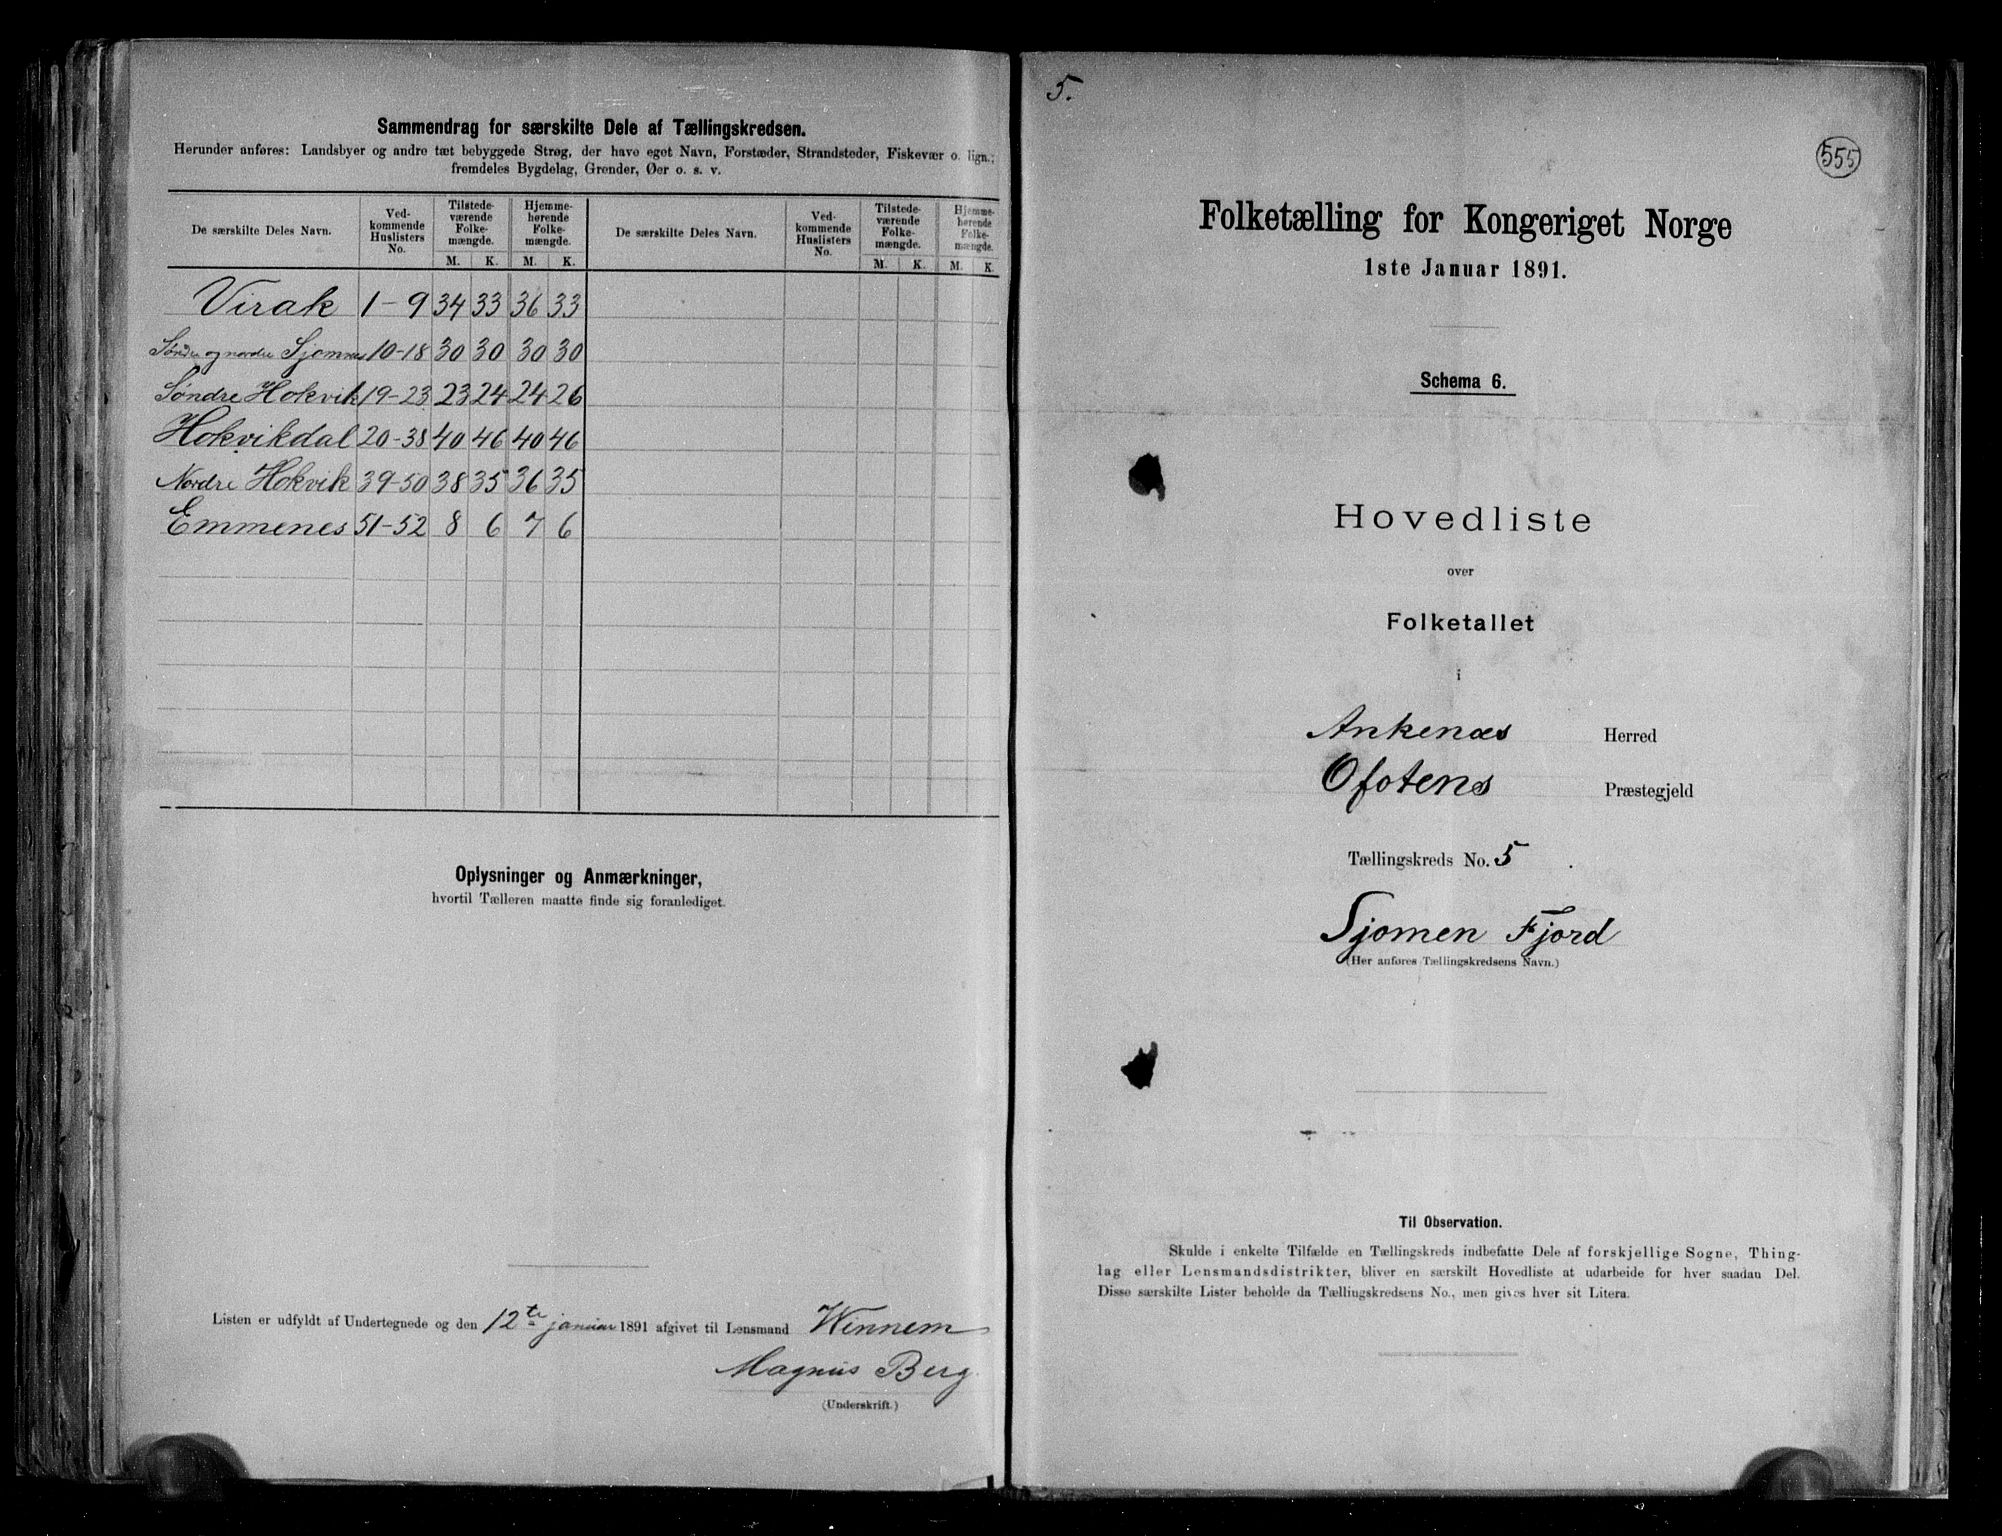 Sammendrag for særskilte Dele af Tællingskredsen.
Herunder anføres: Landsbyer og andre tæt bebyggede Strøg, der have eget Navn, Forstæder, Strandsteder, Fiskevær o. lign.;
fremdeles Bygdelag, Grender, Øer o. s. v.
De særskilte Deles Navn. Ved-kommende Huslisters No. Tilstede-værende Folke-mængde. Hjemme-hørende Folke-mængde. De særskilte Deles Navn. Ved-kommende Huslisters No. Tilstede-værende Folke-mængde. Hjemme-hørende Folke-mængde.
M. K. M. K. M. K. M. K.
Virak 1-9 34 33 36 33
Søndre og nordre Sjomnes 10-18 30 30 30 30
Søndre Hokvik 19-23 23 24 24 26
Hokvikdal 20-38 40 46 40 46
Nordre Hokvik 39-50 38 35 36 35
Emmenes 51-52 8 6 7 6
Oplysninger og Anmærkninger,
hvortil Tælleren maatte finde sig foranlediget.
Listen er udfyldt af Undertegnede og den 12te januar 1891 afgivet til Lensmand Winnem
Magnus Berg
(Underskrift.)
5.
555
Folketælling for Kongeriget Norge
1ste Januar 1891.
Schema 6.
Hovedliste
over
Folketallet
i
Ankenæs Herred
Ofotens Præstegjeld
Tællingskreds No. 5.
Sjomen Fjord
(Her anføres Tællingskredsens Navn.)
Til Observation.
Skulde i enkelte Tilfælde en Tællingskreds indbefatte Dele af forskjellige Sogne, Thing-
lag eller Lensmandsdistrikter, bliver en særskilt Hovedliste at udarbeide for hver saadan Del.
Disse særskilte Lister beholde da Tællingskredsens No., men gives hver sit Litera.